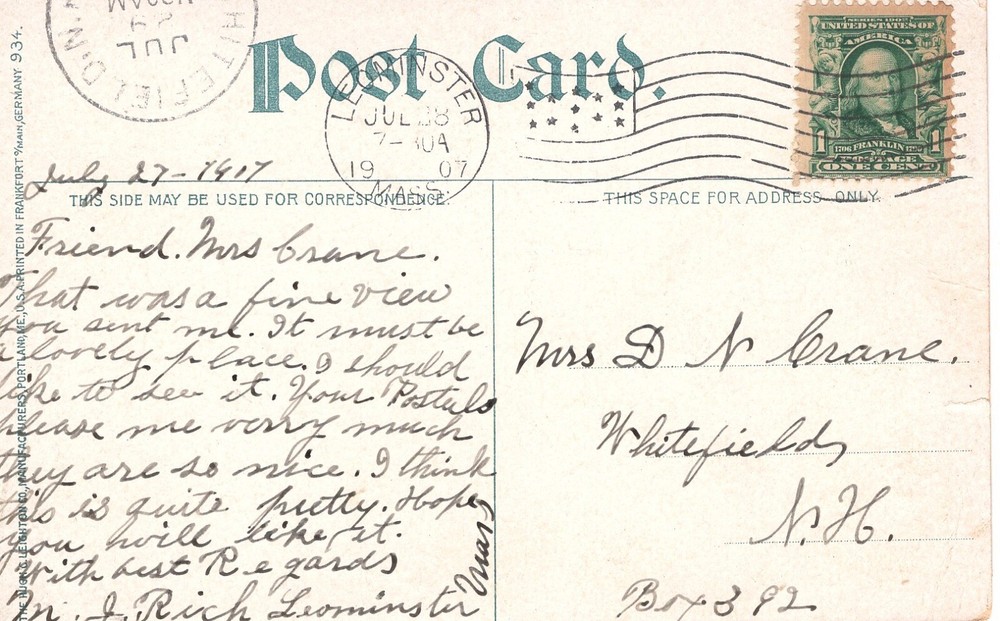 WHITEFIELD N.H.
JUL
29
Post Card.
LEOMINSTER
JUL 28
7-30A
19 07
MASS.
SERIES 1902
UNITED STATES OF
AMERICA
1 1
1706 FRANKLIN 1790
POSTAGE
ONE CENT
July 27 - 1907
THIS SIDE MAY BE USED FOR CORRESPONDENCE.
THIS SPACE FOR ADDRESS ONLY.
Friend. Mrs Crane.
That was a fine view
you sent me. It must be
a lovely place. I should
like to see it. Your Postals
please me verry much
they are so nice. I think
this is quite pretty. Hope
you will like it.
With best Regards
M. J. Rich Leominster
Mass
Mrs D N Crane.
Whitefields
N.H.
Box 392
THE HUGH C. LEIGHTON CO., MANUFACTURERS, PORTLAND, ME., U.S.A. PRINTED IN FRANKFORT o/MAIN, GERMANY 934.